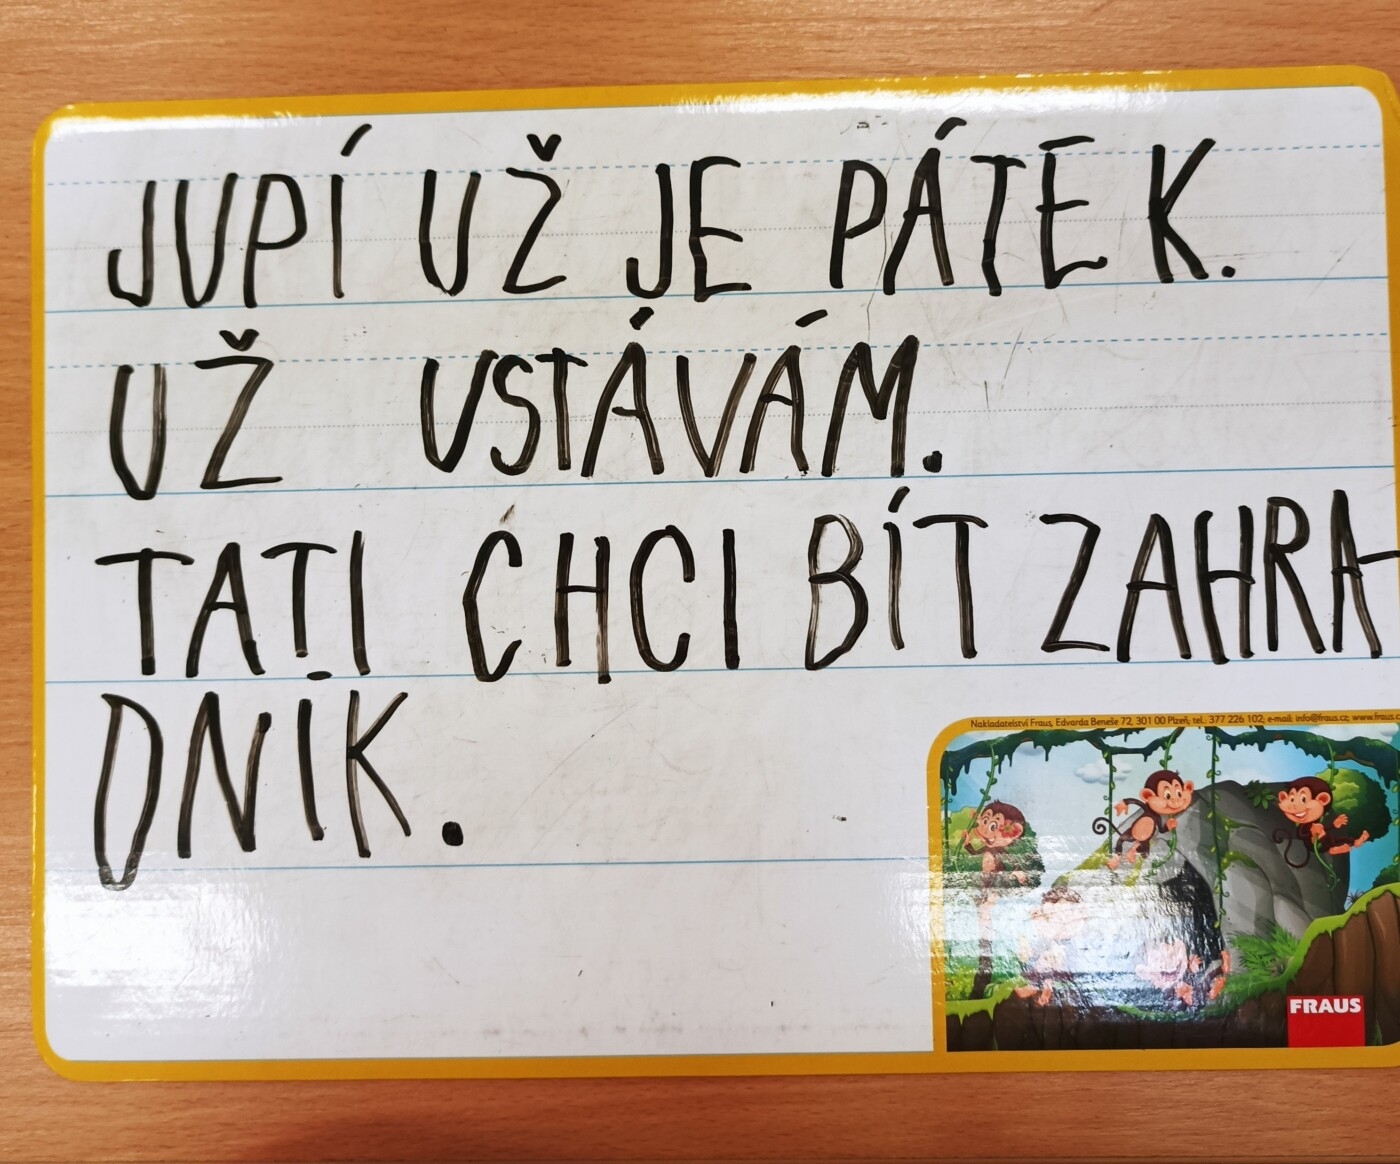 JUPÍ UŽ JE PÁTEK.
UŽ USTÁVÁM.
TATI CHCI BÍT ZAHRA-
DNIK.
Nakladatelství Fraus, Edvarda Beneše 72, 301 00 Plzeň; tel.: 377 226 102; e-mail: info@fraus.cz; www.fraus.c
FRAUS